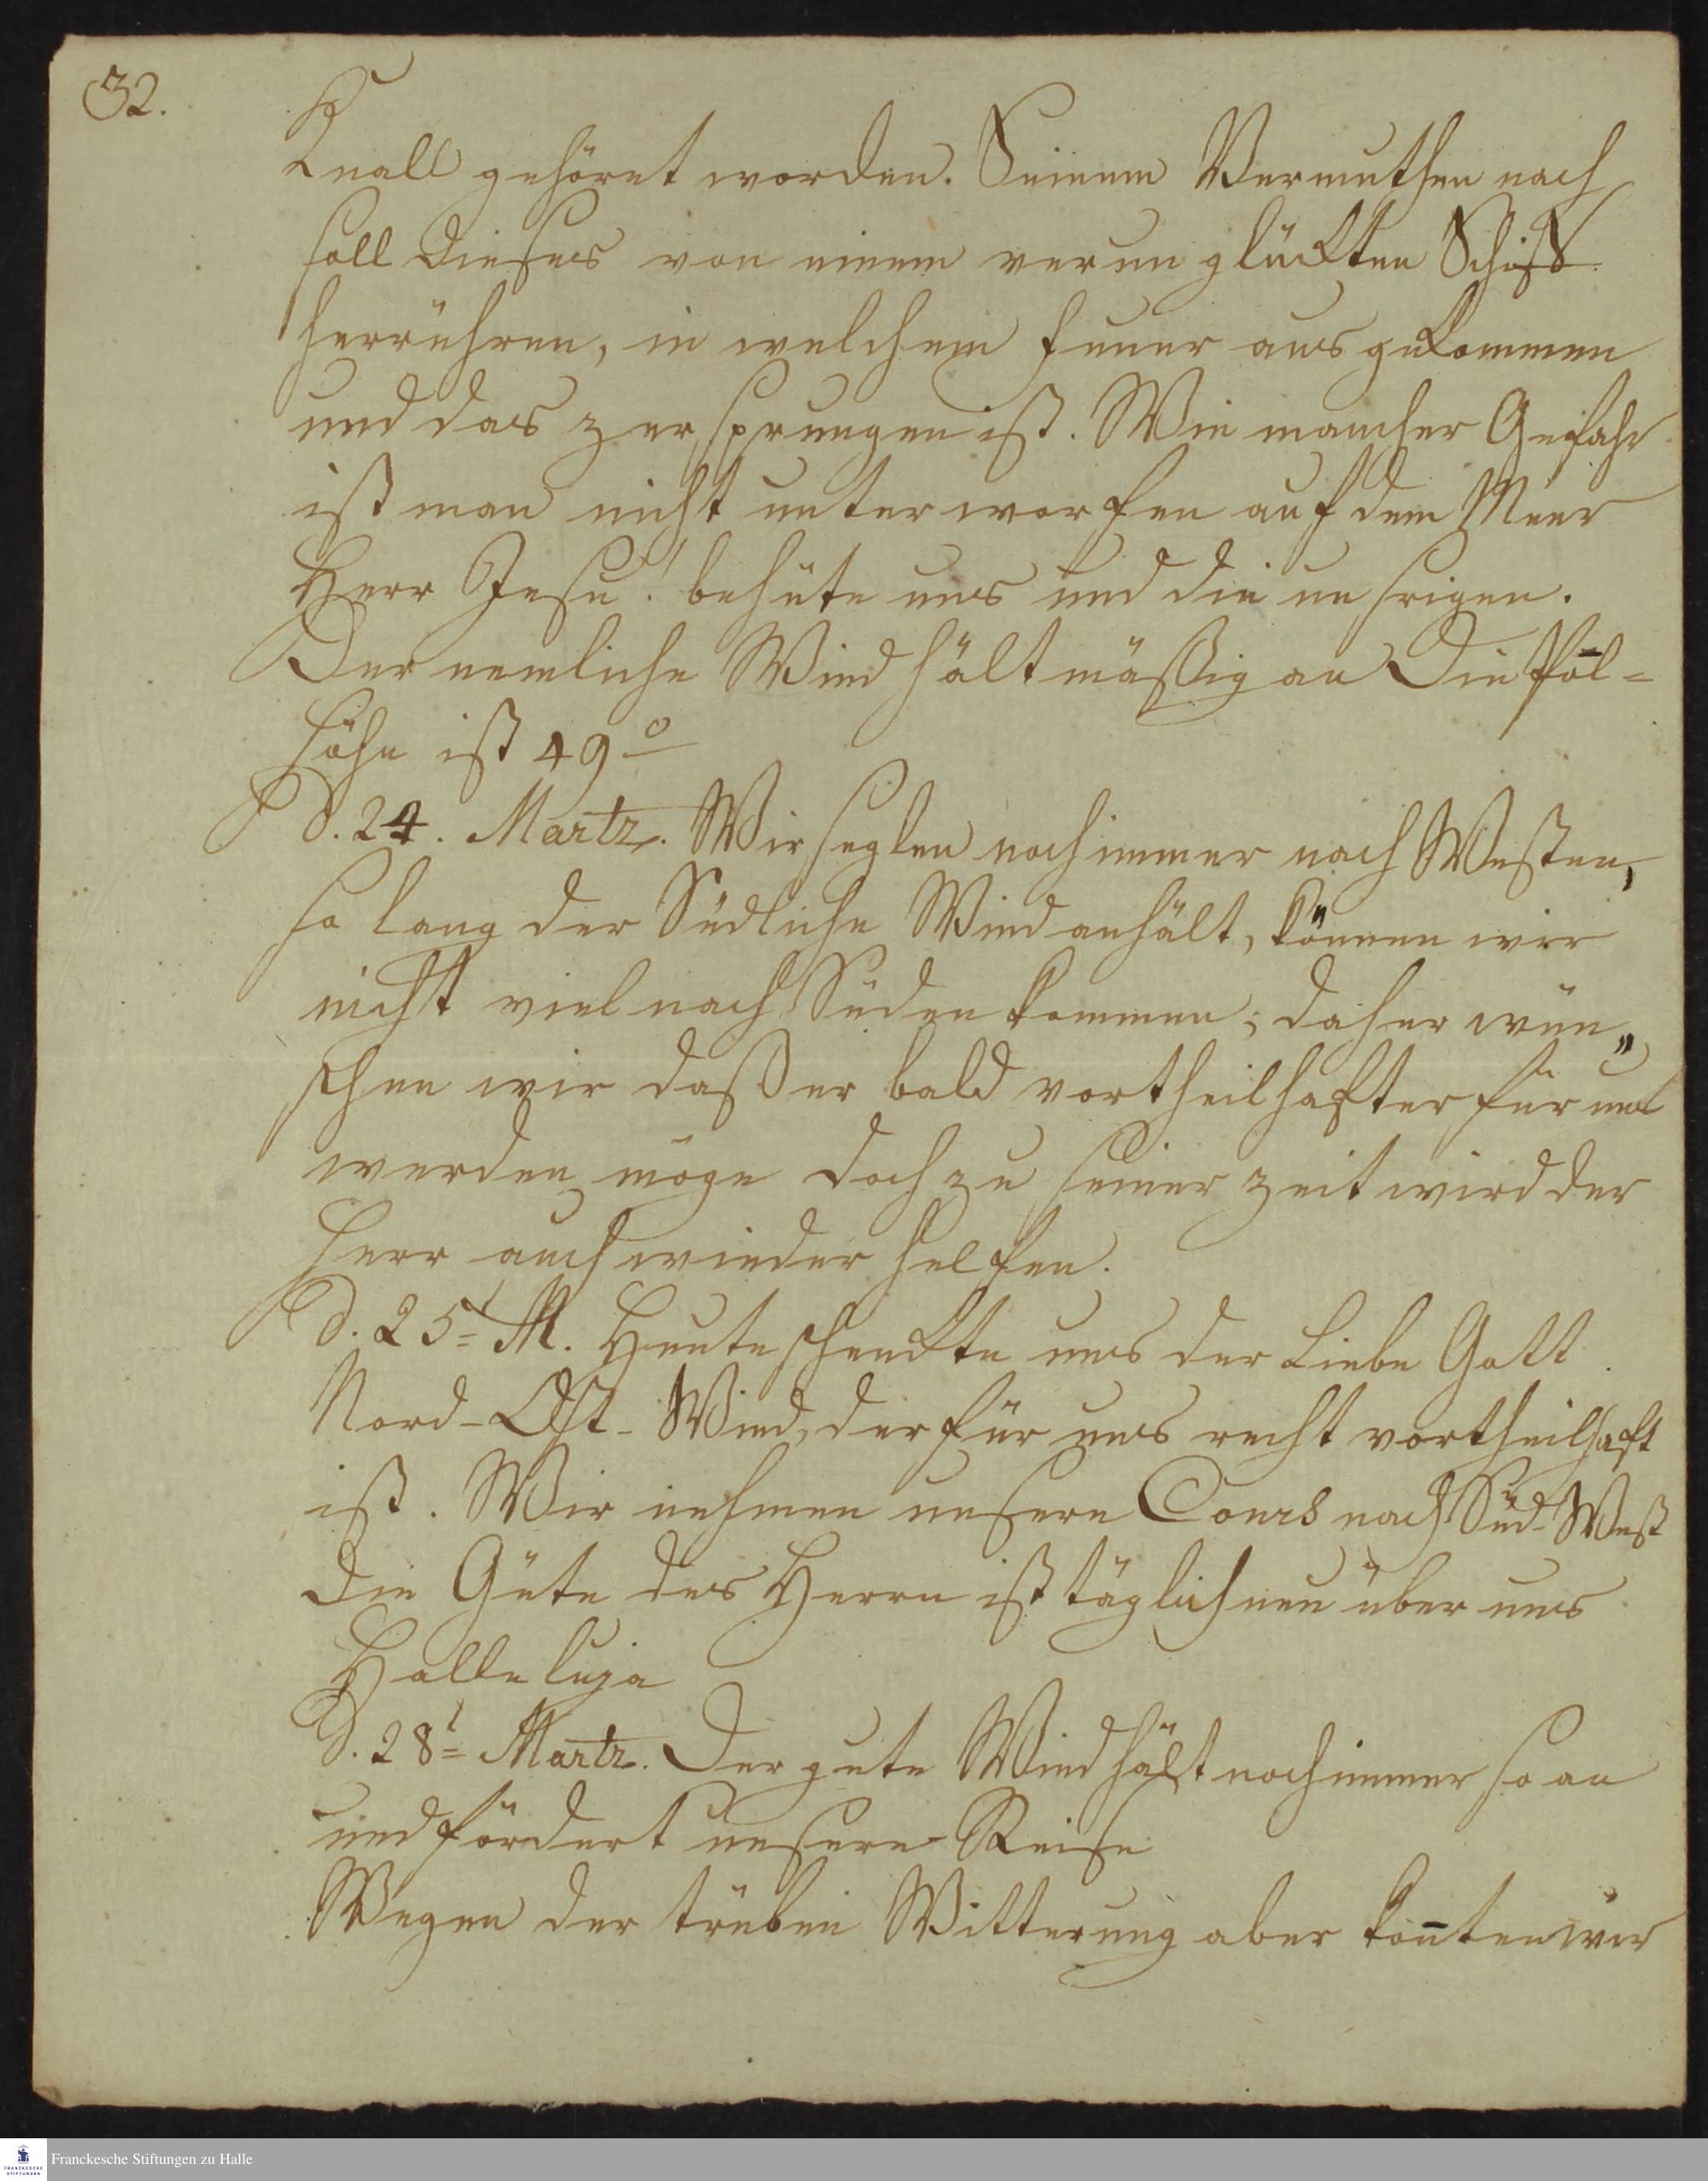 32.
Knall gehöret worden. Seinem Vermuthen nach
soll dieses von einem verunglückten Schiff
herrühren, in welchem feuer ausgekommen
und das zersprungen ist. Wie mancher Gefahr
ist man nicht unterworfen auf dem Meer
Herr Jesu! behüte uns und die unsrigen.
Der nemliche Wind hält mäßig an Die Pol=
höhe ist 49°
d. 24. Martz. Wir seglen noch immer nach Westen,
so lang der Südliche Wind anhält, können wir
nicht viel nach Süden kommen; daher wün„
schen wir daß er bald vortheilhafter für uns
werden möge doch zu seiner zeit wird der
Herr auch wieder helfen.
d. 25t M. Heute schenckte uns der Liebe Gott
Nord-Ost-Wind, der für uns recht vortheilhaft
ist. Wir nehmen unsern Cours nach Süd-West
Die Güte des Herrn ist täglich neu über uns
Halleluja
d. 28t Martz. Der gute Wind hält noch immer so an
und fördert unsere Reise
Wegen der trüben Witterung aber kon̄ten wir
FRANCKESCHE STIFTUNGEN
Franckesche Stiftungen zu Halle